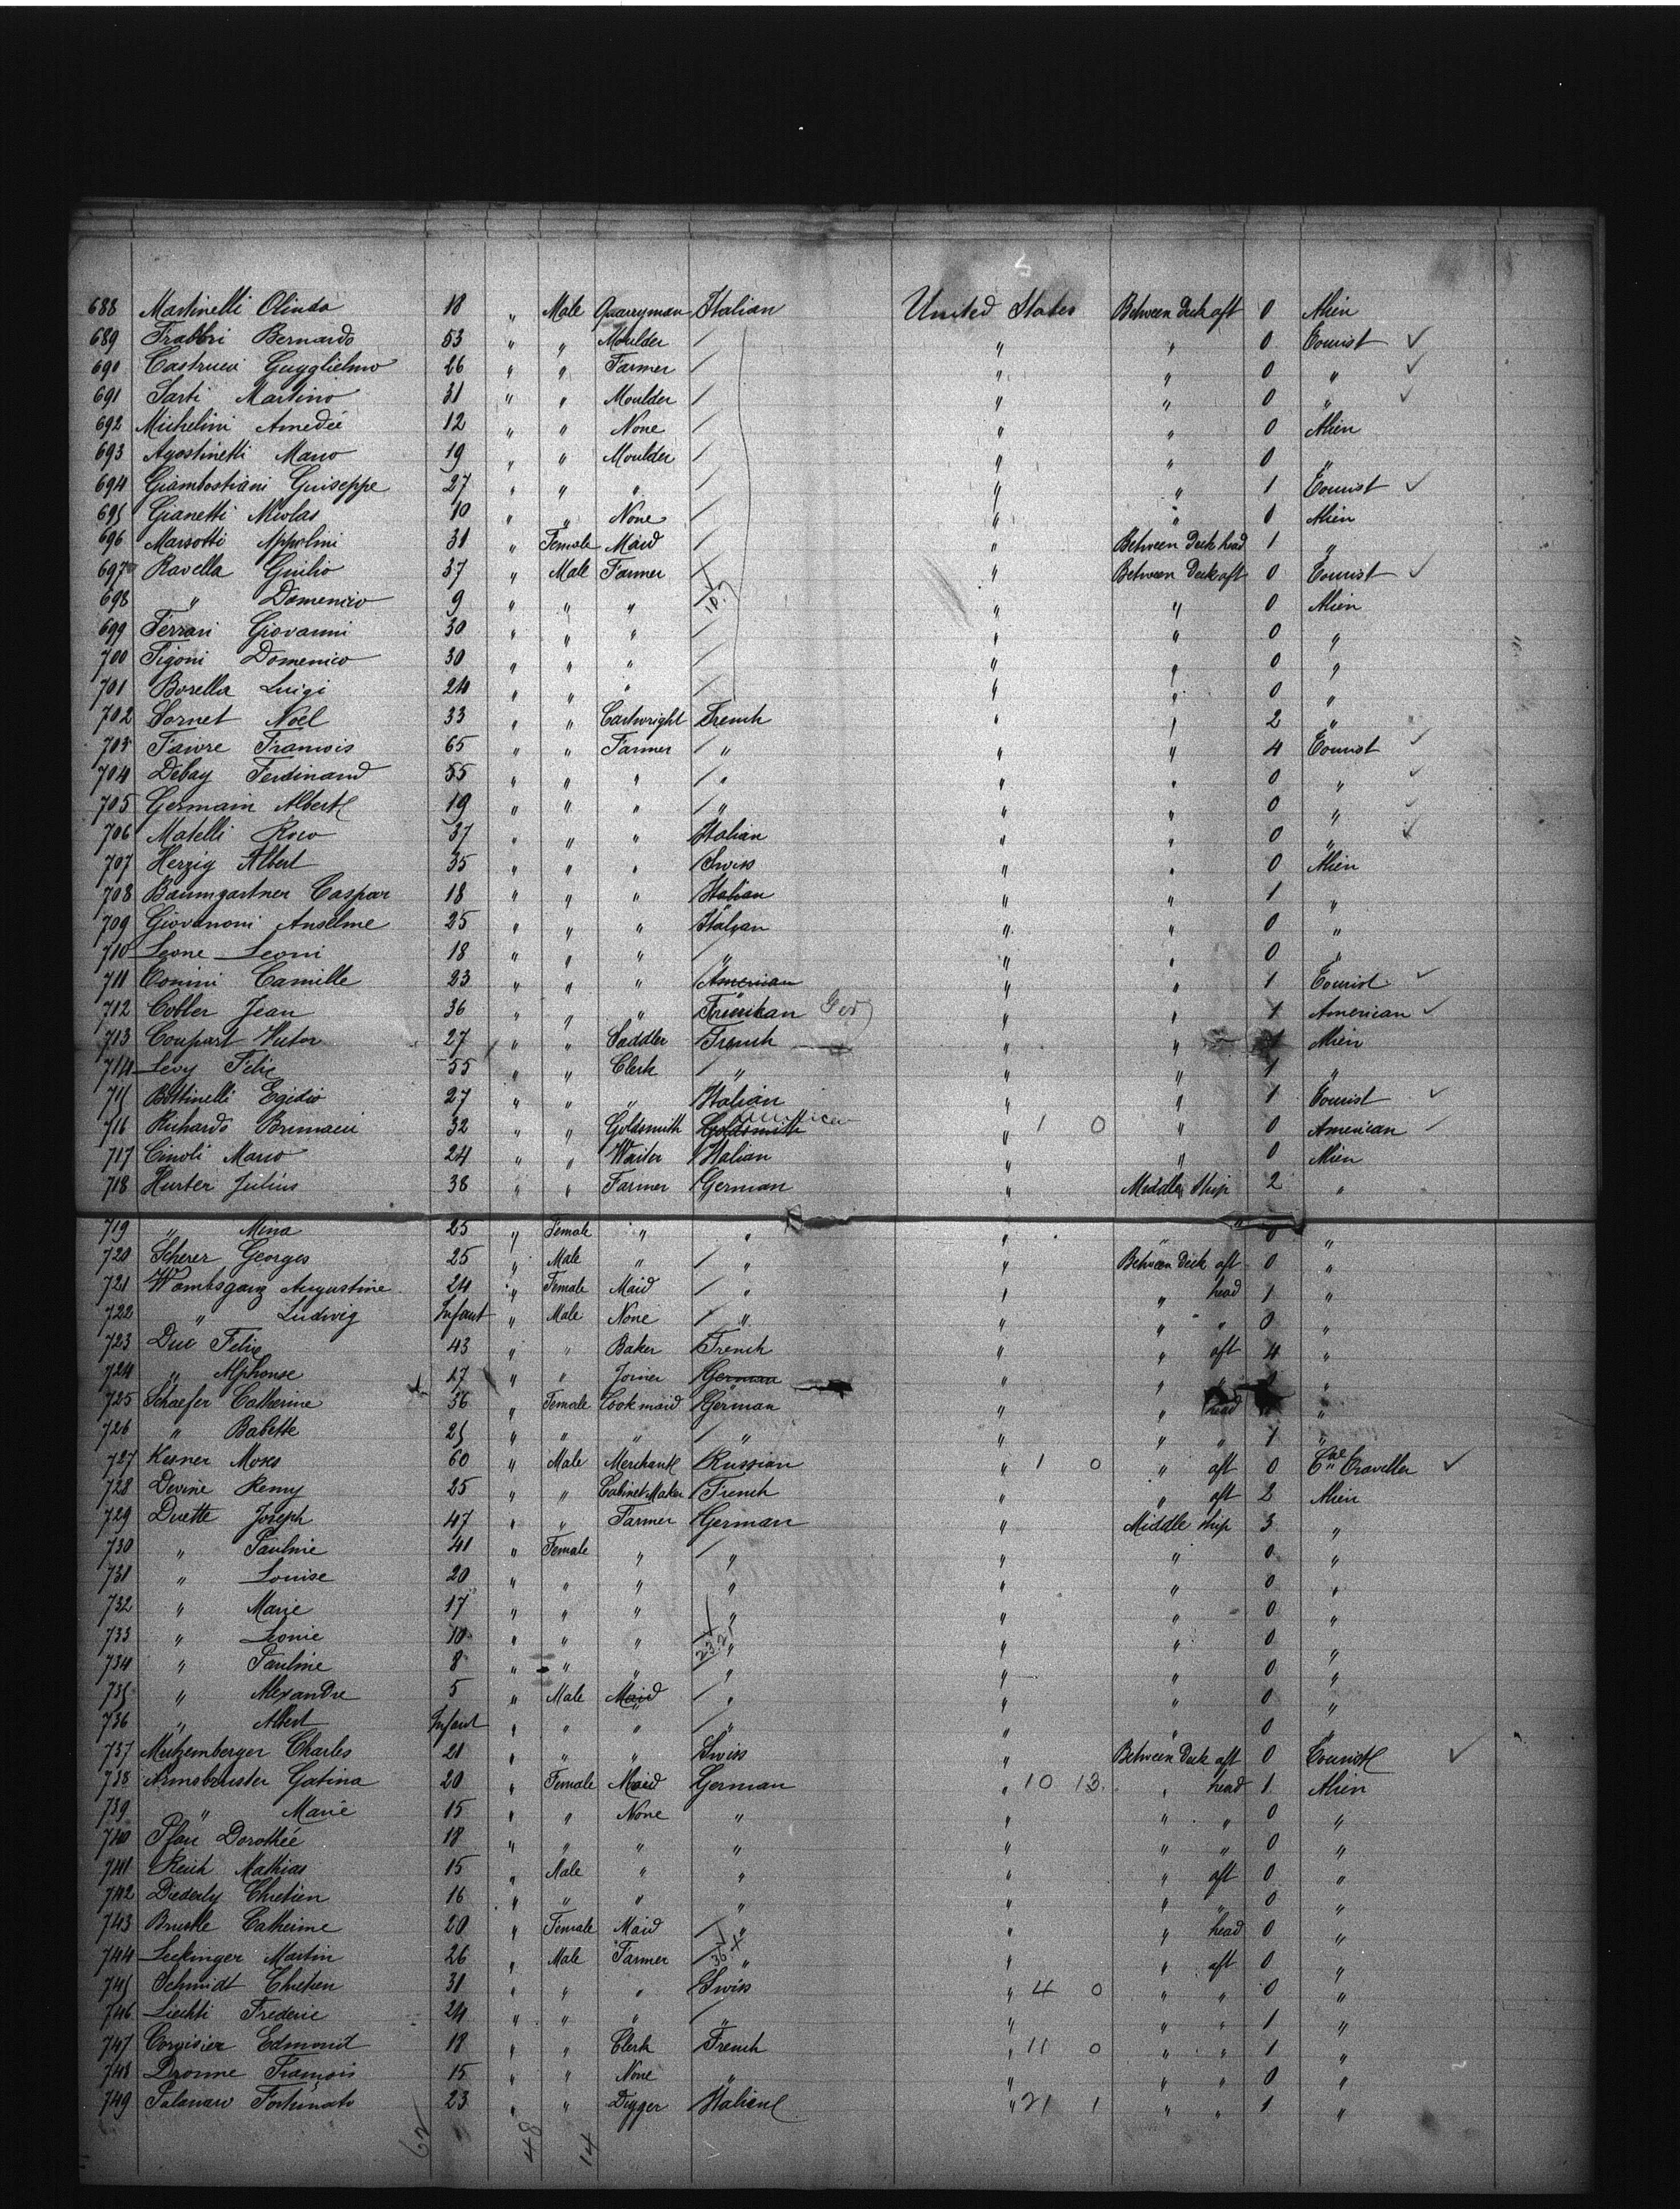 688 Martinelli Olindo 18 " Male Quarryman Italian United States Between Deck aft 0 Alien
689 Frabbri Bernardo 53 " " Moulder / " " 0 Tourist ✓
690 Castrucci Guyglielmo 26 " " Farmer / " " 0 " ✓
691 Sarti Martino 31 " " Moulder / " " 0 " ✓
692 Michelini Amedée 12 " " None / " " 0 Alien
693 Agostinetti Marco 19 " " Moulder / " " 0 "
694 Giambostiani Guiseppe 27 " " " / " " 1 Tourist ✓
695 Gianetti Nicolas 10 " " None / " " 0 Alien
696 Marsotti Appolini 31 " Female Maid / " Between Deck head 1 "
697 Ravella Giulio 37 " Male Farmer / " Between Deck aft 0 Tourist ✓
698 " Domenico 9 " " " / " " 0 Alien
699 Ferrari Giovanni 30 " " " / " " 0 "
700 Figoni Domenico 30 " " " / " " 0 "
701 Borella Luigi 24 " " " / " " 0 "
702 Sornet Noël 33 " " Cartwright French " " 2 "
703 Faivre Francois 65 " " Farmer / " " " 4 Tourist ✓
704 Debay Ferdinand 55 " " " / " " " 0 " ✓
705 Germain Albert 19 " " " / " " " 0 " ✓
706 Matelli Roco 37 " " " Italian " " 0 " ✓
707 Herzig Albert 35 " " " Swiss " " 0 Alien
708 Baumgartner Caspar 18 " " " Italian " " 1 "
709 Giovanoni Anselme 25 " " " Italian " " 0 "
710 Leone Leoni 18 " " " / " " " 0 "
711 Comini Camille 23 " " " American " " 1 Tourist ✓
712 Cobler Jean 36 " " " " " 1 American ✓
713 Coupart Victor 27 " " Saddler French " " Alien
714 Levy Felix 55 " " Clerk / " " " 1 "
715 Bottinelli Egidio 27 " " " Italian " " 1 Tourist ✓
716 Richards 32 " " Goldsmith Goldsmith American " 1 0 " 0 American ✓
717 Cinoli Marco 24 " " Waiter Italian " " 0 Alien
718 Hurter Julius 38 " " Farmer German " Middle Ship 2 "
719 " Mina 25 " Female " " " " 0 "
720 Scherer Georges 25 " Male " / " " Between Deck aft 0 "
721 Wambsganz Augustine 24 " Female Maid / " " " head 1 "
722 " Ludwig Infant " Male None / " " " " 0 "
723 Duc Felix 43 " " Baker French " " aft 4 "
724 " Alphonse 17 " " Joiner German " " " "
725 Schaefer Catherine 36 " Female Cook maid German " " head "
726 " Babette 25 " " " / " " " " 1 "
727 Kesner Moses 60 " Male Merchant Russian " 1 0 " aft 0 Traveller ✓
728 Devine Remy 25 " " Cabinet Maker French " " aft 2 Alien
729 Duette Joseph 47 " " Farmer German " Middle ship 3 "
730 " Pauline 41 " Female " / " " " 0 "
731 " Louise 20 " " " " " " 0 "
732 " Marie 17 " " " " " " 0 "
733 " Leonie 10 " " " " " " 0 "
734 " Pauline 8 " " " " " " 0 "
735 " Alexandre 5 " Male Maid / " " " 0 "
736 " Albert Infant " " " / " " " 0 "
737 Mutzemberger Charles 21 " " " Swiss " Between Deck aft 0 Tourist ✓
738 Armsbruster Gatina 20 " Female Maid German " 10 13 " head 1 Alien
739 " Marie 15 " " None " " " " 0 "
740 Pfau Dorothée 18 " " " " " " " 0 "
741 Reich Mathias 15 " Male " " " " aft 0 "
742 Diederly Chretien 16 " " " " " " " 0 "
743 Brustle Catherine 20 " Female Maid / " " " head 0 "
744 Leckinger Martin 26 " Male Farmer / " " " aft 0 "
745 Schmidt Chretien 31 " " " Swiss " 4 0 " " 0 "
746 Liechti Frederic 24 " " " / " " " " 1 "
747 Corvisier Edmond 18 " " Clerk French " 11 0 " " 1 "
748 Dronne Francois 15 " " None " " " " 0 "
749 Fortunato 23 " " Digger Italian " 21 1 " " 1 "
62 48 14